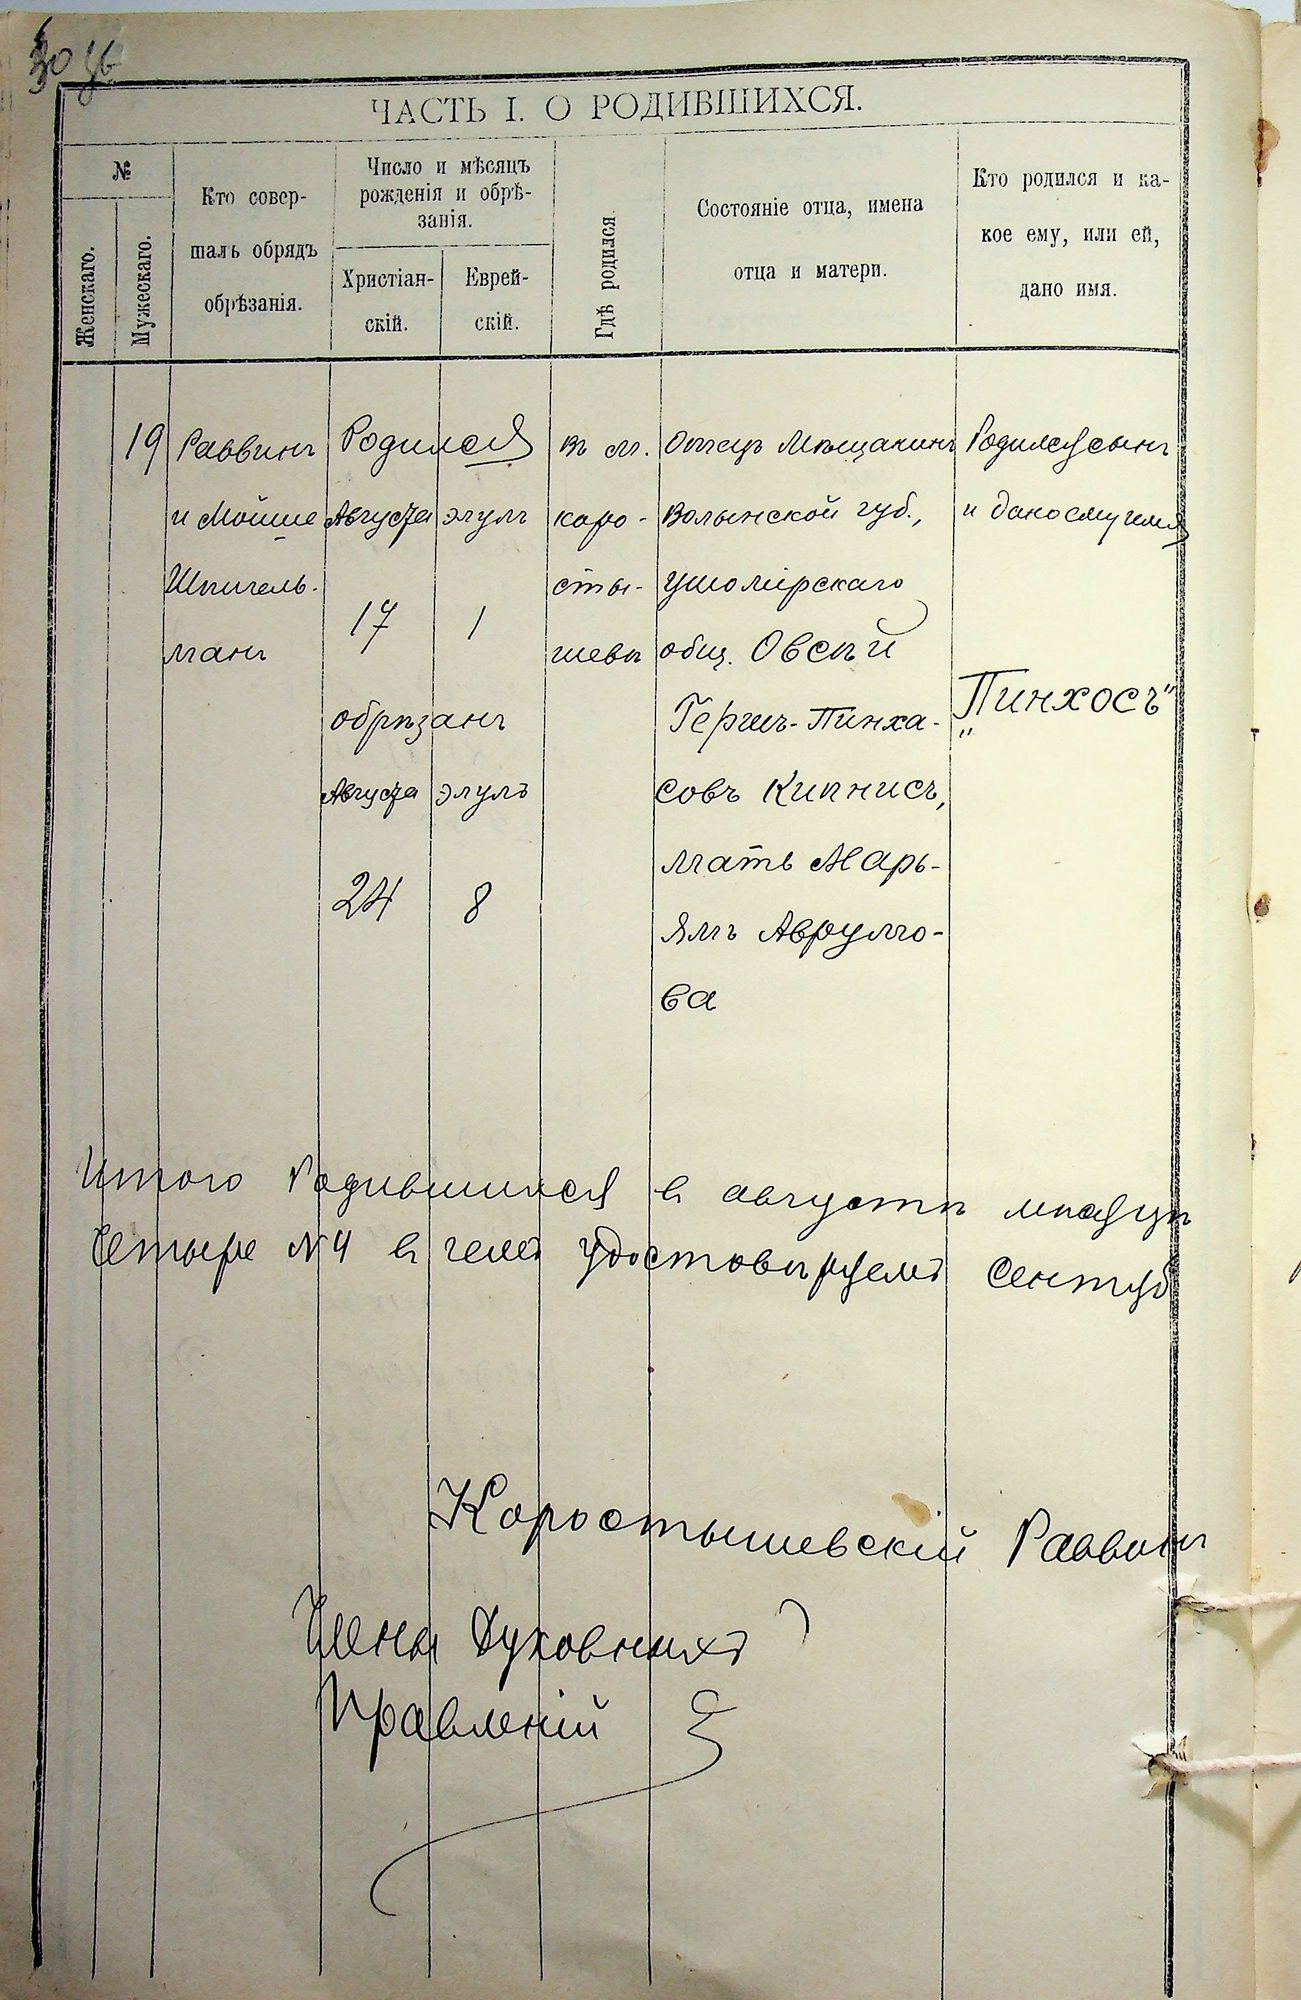 ЧАСТЬ I. О РОДИВШИХСЯ.
№
Женскаго.
Мужескаго.
Кто совер-
шалъ обрядъ
обрѣзанія.
Число и мѣсяцъ
рожденія и обрѣ-
занія.
Христіан-
скій.
Еврей-
скій.
Гдѣ родился
Состояніе отца, имена
отца и матери.
Кто родился и ка-
кое ему, или ей,
дано имя.
19
Раввинъ
и Мойше
Шпигель-
манъ
Родился
Августа элулъ
17 1
обрѣзанъ
Августа элулъ
24 8
въ м.
каро-
сты-
шевѣ
Отецъ Мѣщанинъ
Волынской губ.,
ушомірскаго
общ. Овсѣй
Гершъ-Пинха-
совъ Кипнисъ,
мать Марь-
ямъ Аврумо-
ва
Родился сынъ
и дано ему имя
„Пинхосъ"
Итого Родившихся въ августѣ мѣсяцѣ
Четыре №4 в чемъ удостовѣряемъ
Коростышевскій Раввинъ
Члены Духовныхъ
Правленій